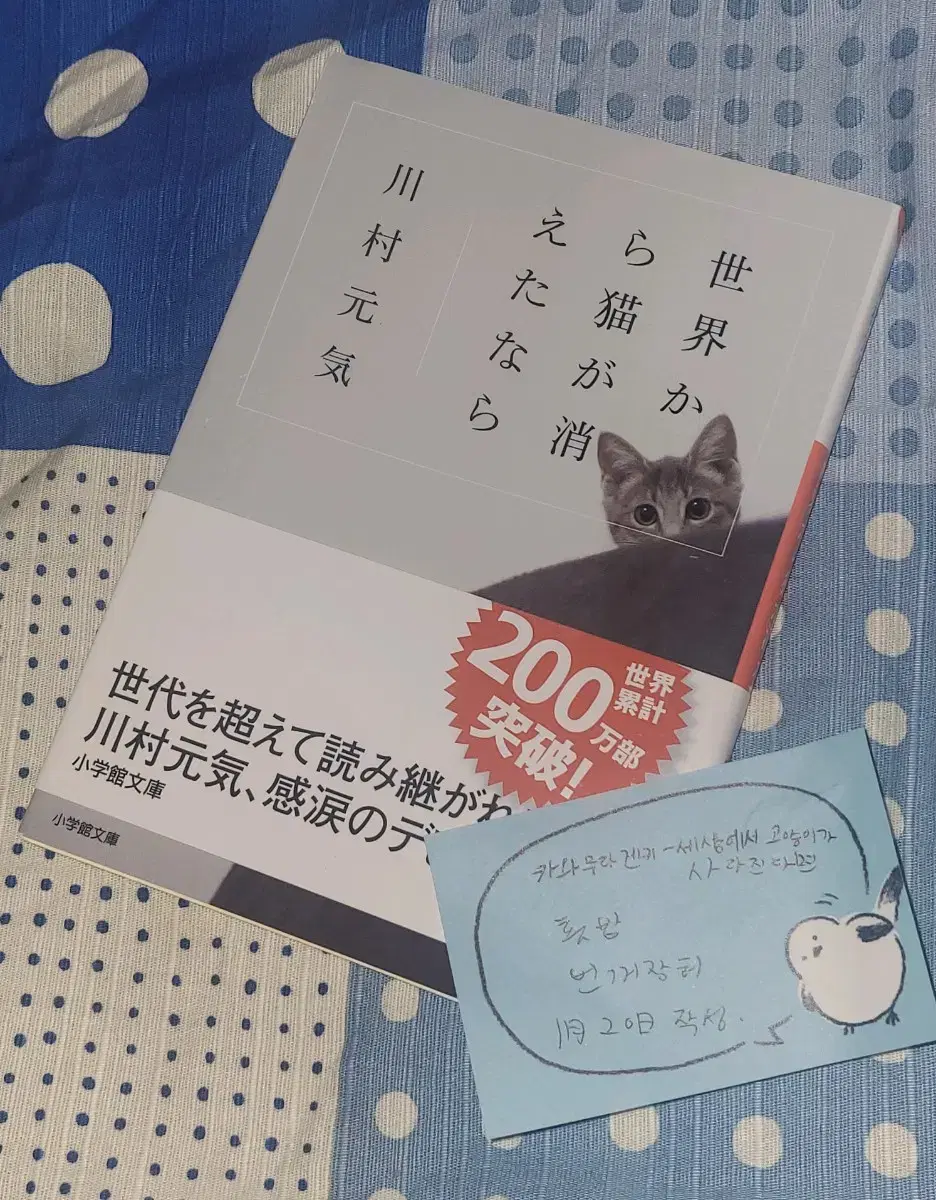 世界か
ら猫が消
えたなら
川村元気
200万部
世界
累計
突破!
世代を超えて読み継がれ
川村元気、感涙のデ
小学館文庫
小学館文庫
카와무라 겐키 - 세상에서 고양이가
사라진다면
번개장터
1月 20日 작성.